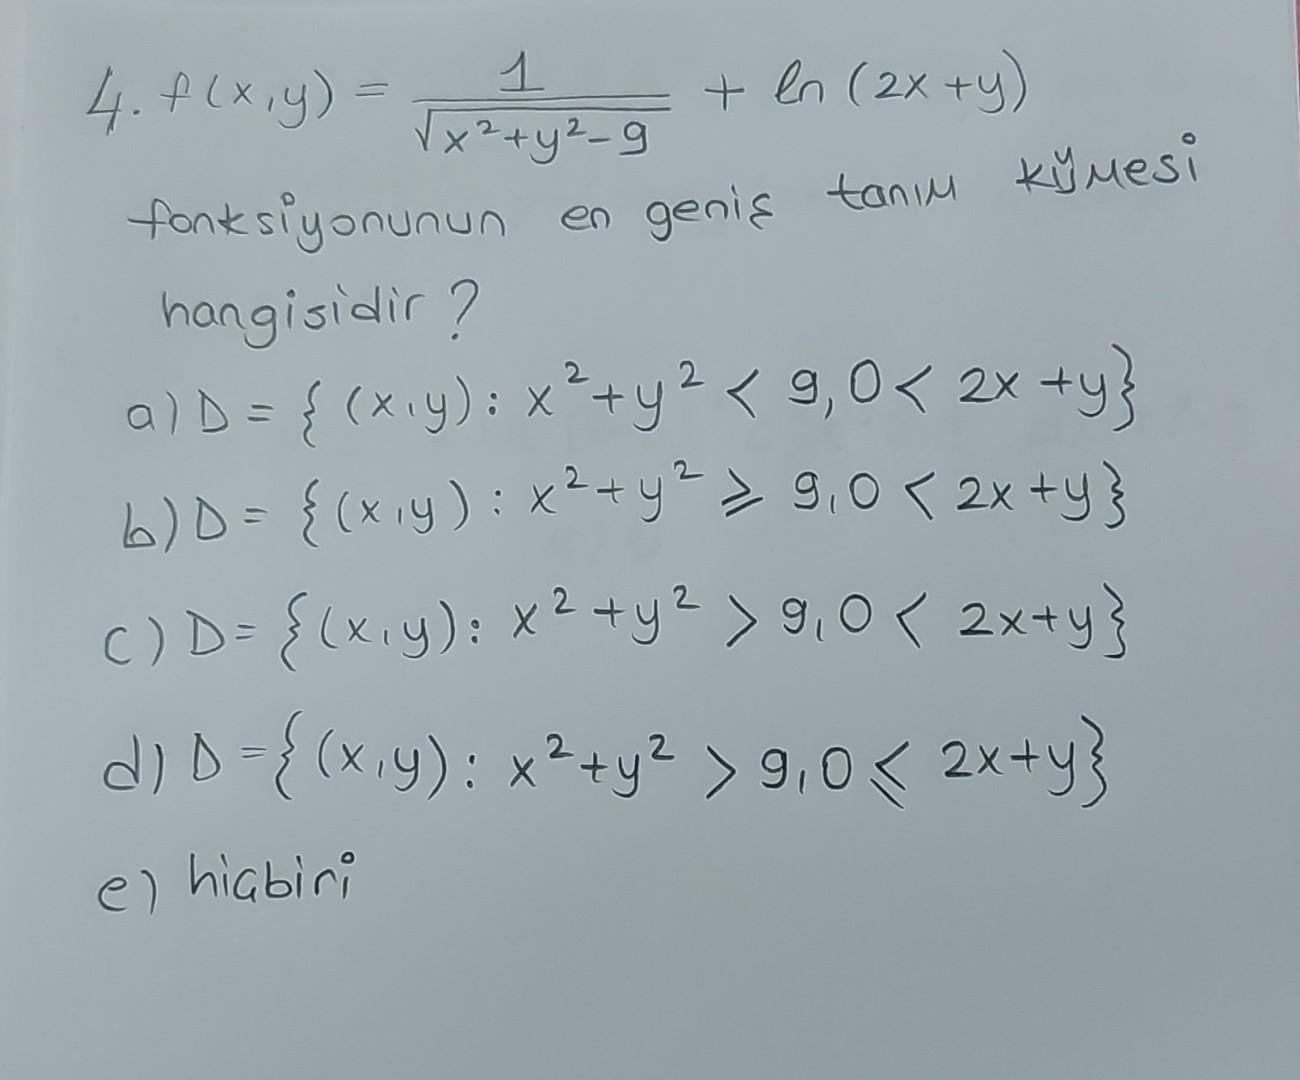 4. f(x,y) = 1/√(x²+y²-9) + ln(2x+y)
fonksiyonunun en geniş tanım kümesi
hangisidir?
a) D = {(x,y): x²+y² < 9, 0 < 2x+y}
b) D = {(x,y): x²+y² ⩾ 9, 0 < 2x+y}
c) D = {(x,y): x²+y² > 9, 0 < 2x+y}
d) D = {(x,y): x²+y² > 9, 0 ⩽ 2x+y}
e) hiçbiri